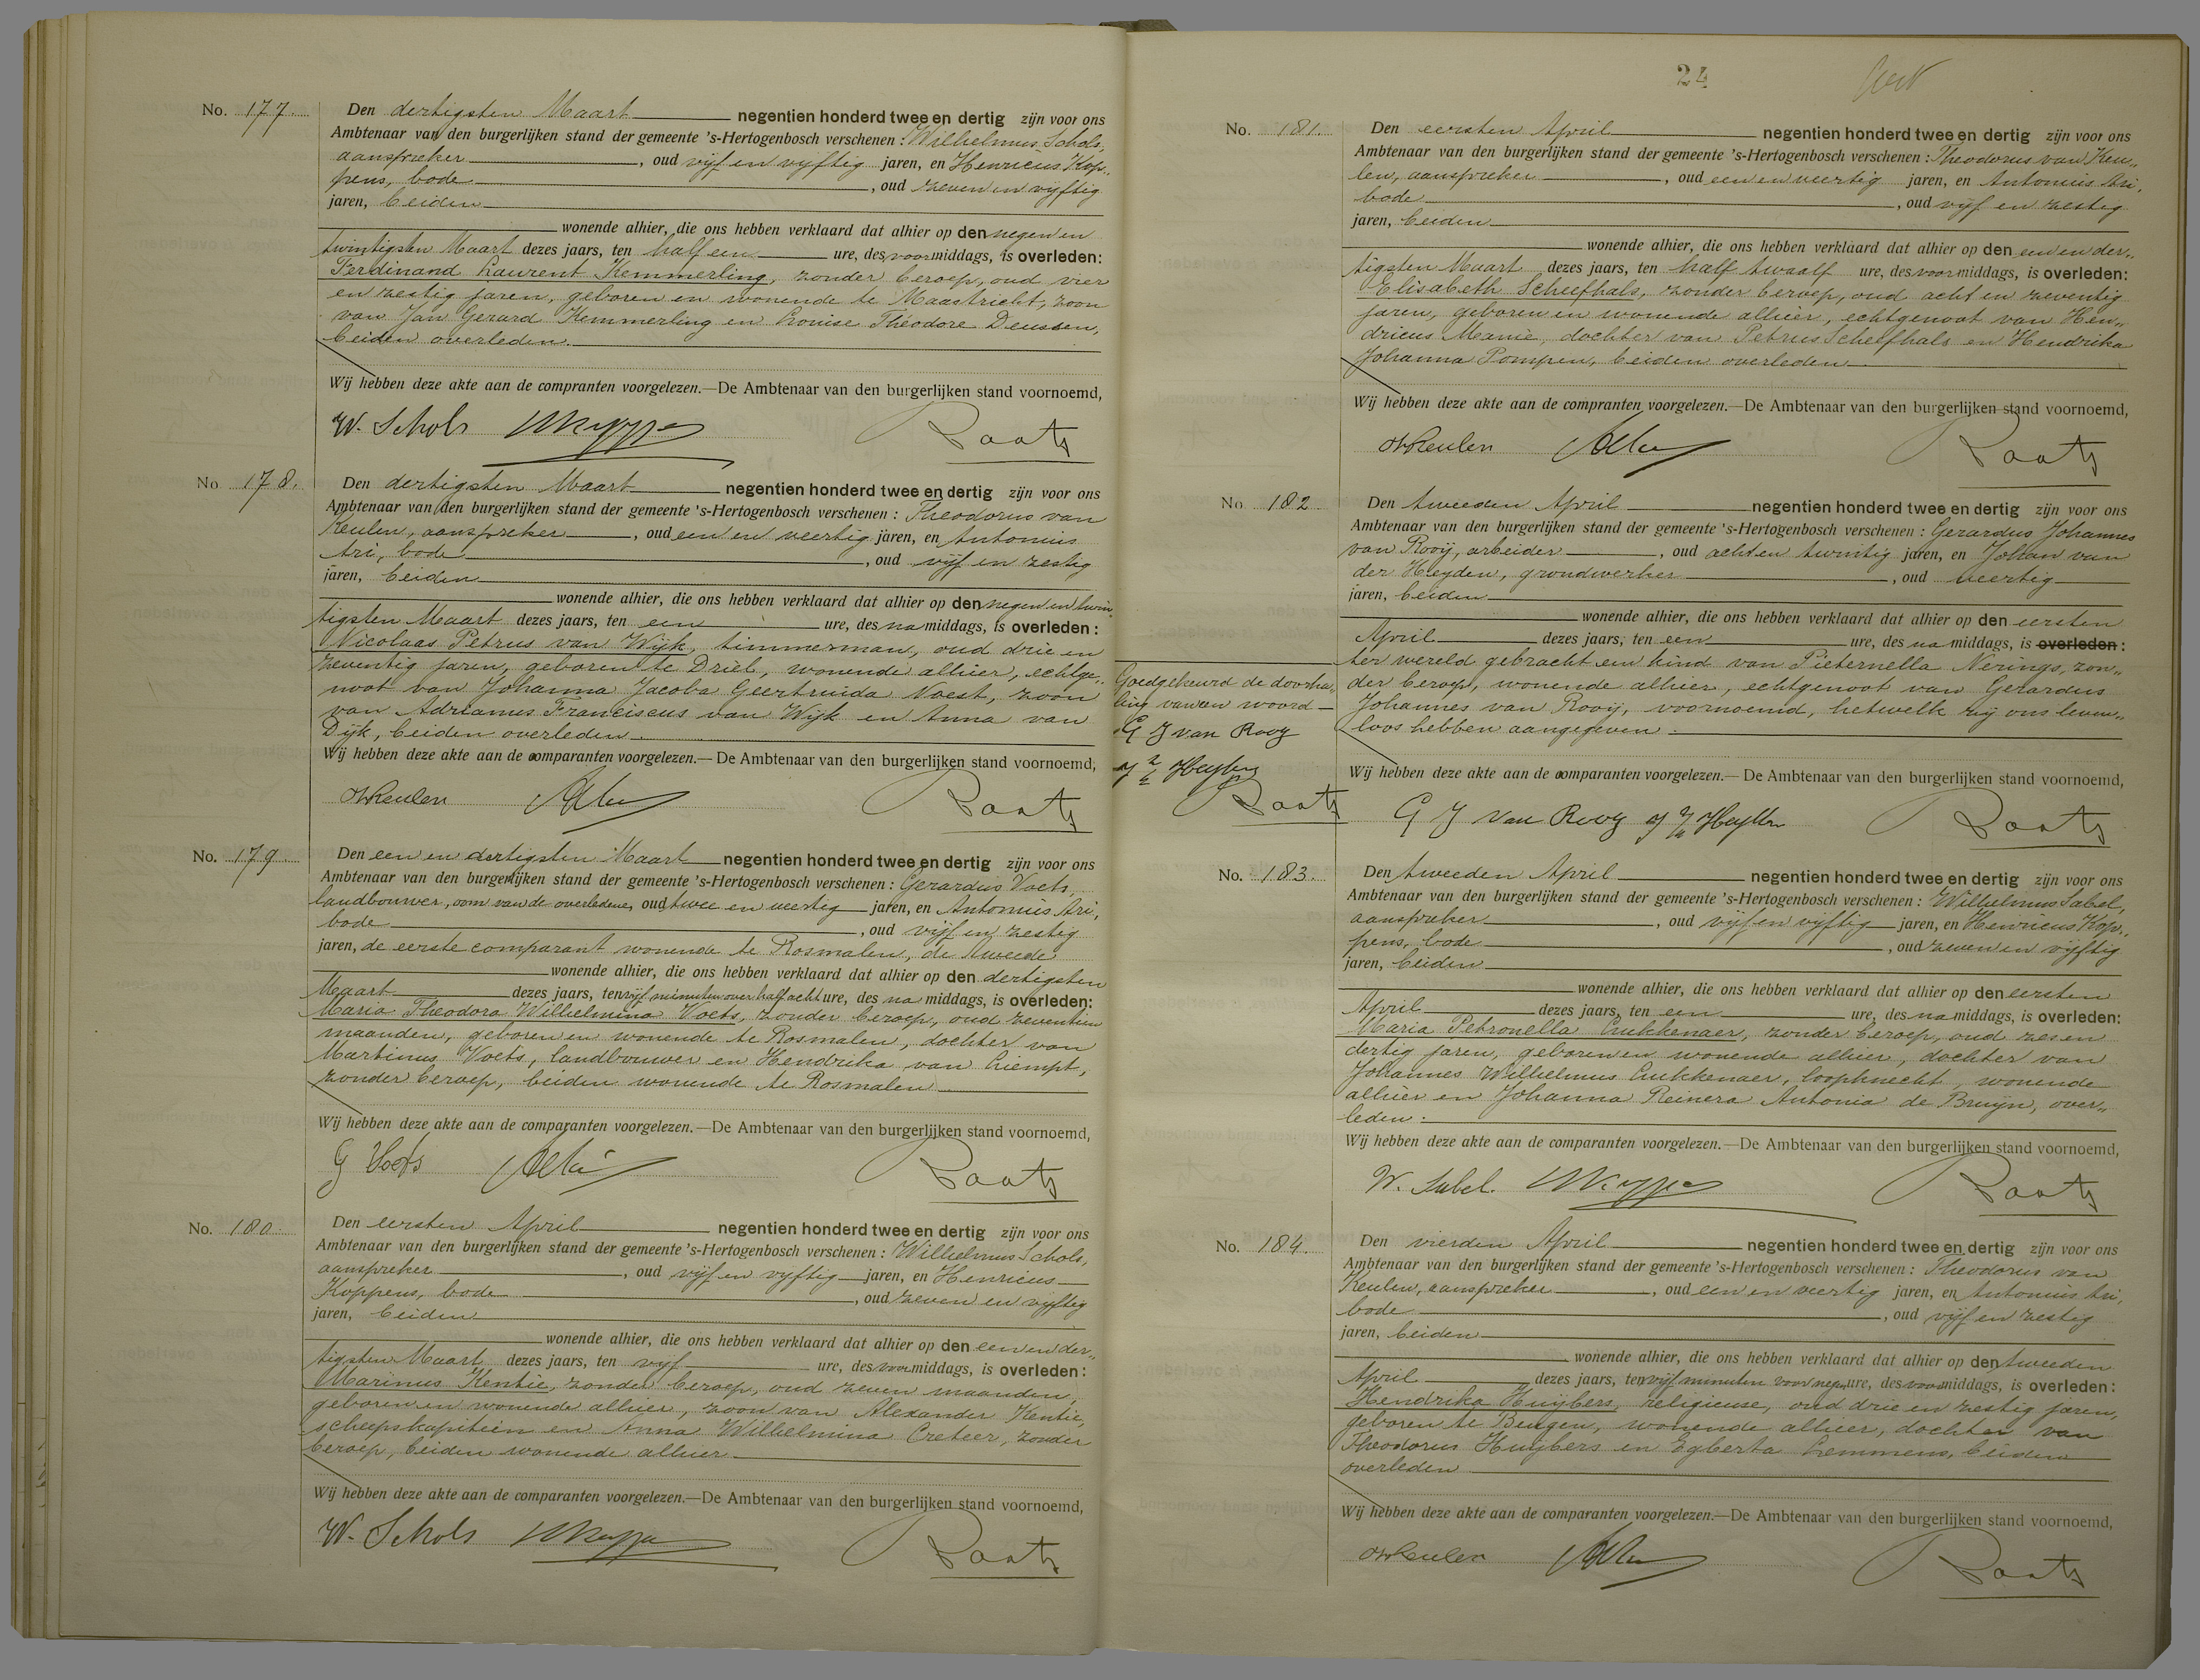 No. 177.
Den dertigsten Maart negentien honderd twee en dertig zijn voor ons
Ambtenaar van den burgerlijken stand der gemeente 's-Hertogenbosch verschenen: Wilhelmus Schols,
aanspreker, oud vijf en vijftig jaren, en Henricus Kop„
pens, bode, oud zeven en vijftig
jaren, beiden
wonende alhier, die ons hebben verklaard dat alhier op den negen en
twintigsten Maart dezes jaars, ten half een ure, des voormiddags, is overleden:
Ferdinand Laurent Kemmerling, zonder beroep, oud vier
en zestig jaren, geboren en wonende te Maastricht, zoon
van Jan Gerard Kemmerling en Louise Théodore Deussen,
beiden overleden.
Wij hebben deze akte aan de compranten voorgelezen.—De Ambtenaar van den burgerlijken stand voornoemd,
W. Schols
No 178.
Den dertigsten Maart negentien honderd twee en dertig zijn voor ons
Ambtenaar van den burgerlijken stand der gemeente 's-Hertogenbosch verschenen: Theodorus van
Keulen, aanspreker, oud een en veertig jaren, en Antonius
Ari, bode, oud vijf en zestig
jaren, beiden
wonende alhier, die ons hebben verklaard dat alhier op den negen en twin„
tigsten Maart dezes jaars, ten een ure, des na middags, is overleden:
Nicolaas Petrus van Wijk, timmerman, oud drie en
zeventig jaren, geboren te Driel, wonende alhier, echtge„
noot van Johanna Jacoba Geertruida Voest, zoon
van Adrianus Franciscus van Wijk en Anna van
Dijk, beiden overleden.
Wij hebben deze akte aan de comparanten voorgelezen.—De Ambtenaar van den burgerlijken stand voornoemd,
No. 179
Den een en dertigsten Maart negentien honderd twee en dertig zijn voor ons
Ambtenaar van den burgerlijken stand der gemeente 's-Hertogenbosch verschenen: Gerardus Voets,
landbouwer, oom van de overledene, oud twee en veertig jaren, en Antonius Ari,
bode, oud vijf en zestig
jaren, de eerste comparant wonende te Rosmalen, de tweede
wonende alhier, die ons hebben verklaard dat alhier op den dertigsten
Maart dezes jaars, ten vijf minuten over half acht ure, des na middags, is overleden:
Maria Theodora Wilhelmina Voets, zonder beroep, oud zeventien
maanden, geboren en wonende te Rosmalen, dochter van
Martinus Voets, landbouwer en Hendrika van Liempt,
zonder beroep, beiden wonende te Rosmalen
Wij hebben deze akte aan de comparanten voorgelezen.—De Ambtenaar van den burgerlijken stand voornoemd,
G Voets
No. 180.
Den eersten April negentien honderd twee en dertig zijn voor ons
Ambtenaar van den burgerlijken stand der gemeente 's-Hertogenbosch verschenen: Wilhelmus Schols,
aanspreker, oud vijf en vijftig jaren, en Henricus
Koppens, bode, oud zeven en vijftig
jaren, beiden
wonende alhier, die ons hebben verklaard dat alhier op den een en der„
tigsten Maart dezes jaars, ten vijf ure, des voormiddags, is overleden:
Marinus Kentie, zonder beroep, oud zeven maanden,
geboren en wonende alhier, zoon van Alexander Kentie,
scheepskapitein en Anna Wilhelmina Creteer, zonder
beroep, beiden wonende alhier
Wij hebben deze akte aan de comparanten voorgelezen.—De Ambtenaar van den burgerlijken stand voornoemd,
W. Schols
24
No. 181.
Den eersten April negentien honderd twee en dertig zijn voor ons
Ambtenaar van den burgerlijken stand der gemeente 's-Hertogenbosch verschenen: Theodorus van Keu„
len, aanspreker, oud een en veertig jaren, en Antonius Ari,
bode, oud vijf en zestig
jaren, beiden
wonende alhier, die ons hebben verklaard dat alhier op den een en der„
tigsten Maart dezes jaars, ten half twaalf ure, des voormiddags, is overleden:
Elisabeth Scheefhals, zonder beroep, oud acht en zeventig
jaren, geboren en wonende alhier, echtgenoot van Hen„
dricus Manie, dochter van Petrus Scheefhals en Hendrika
Johanna Pompen, beiden overleden
Wij hebben deze akte aan de compranten voorgelezen.—De Ambtenaar van den burgerlijken stand voornoemd,
No. 182
Den tweeden April negentien honderd twee en dertig zijn voor ons
Ambtenaar van den burgerlijken stand der gemeente 's-Hertogenbosch verschenen: Gerardus Johannes
van Rooij, arbeider, oud acht en twintig jaren, en Johan van
der Heyden, grondwerker, oud veertig
jaren, beiden
wonende alhier, die ons hebben verklaard dat alhier op den eersten
April dezes jaars, ten een ure, des na middags, is overleden:
ter wereld gebracht een kind van Pieternella Nerings, zon„
der beroep, wonende alhier, echtgenoot van Gerardus
Johannes van Rooij, voornoemd, hetwelk zij ons leven„
loos hebben aangegeven.
Goedgekeurd de doorha„
ling van een woord
G J van Rooy
Wij hebben deze akte aan de comparanten voorgelezen.—De Ambtenaar van den burgerlijken stand voornoemd,
G J van Rooy
No. 183.
Den tweeden April negentien honderd twee en dertig zijn voor ons
Ambtenaar van den burgerlijken stand der gemeente 's-Hertogenbosch verschenen: Wilhelmus Sabel,
aanspreker, oud vijf en vijftig jaren, en Henricus Kop„
pens, bode, oud zeven en vijftig
jaren, beiden
wonende alhier, die ons hebben verklaard dat alhier op den eersten
April dezes jaars, ten een ure, des na middags, is overleden:
Maria Petronella Lukkenaer, zonder beroep, oud zes en
dertig jaren, geboren en wonende alhier, dochter van
Johannes Wilhelmus Lukkenaer, loopknecht, wonende
alhier en Johanna Reinera Antonia de Bruijn, over„
leden.
Wij hebben deze akte aan de comparanten voorgelezen.—De Ambtenaar van den burgerlijken stand voornoemd,
W. Sabel.
No. 184.
Den vierden April negentien honderd twee en dertig zijn voor ons
Ambtenaar van den burgerlijken stand der gemeente 's-Hertogenbosch verschenen: Theodorus van
Keulen, aanspreker, oud een en veertig jaren, en Antonius Ari,
bode, oud vijf en zestig
jaren, beiden
wonende alhier, die ons hebben verklaard dat alhier op den tweeden
April dezes jaars, ten vijf minuten voor negen ure, des voormiddags, is overleden:
Hendrika Huijbers, religieuse, oud drie en zestig jaren,
geboren te Beugen, wonende alhier, dochter van
Theodorus Huijbers en Egberta Lemmens, beiden
overleden
Wij hebben deze akte aan de comparanten voorgelezen.—De Ambtenaar van den burgerlijken stand voornoemd,